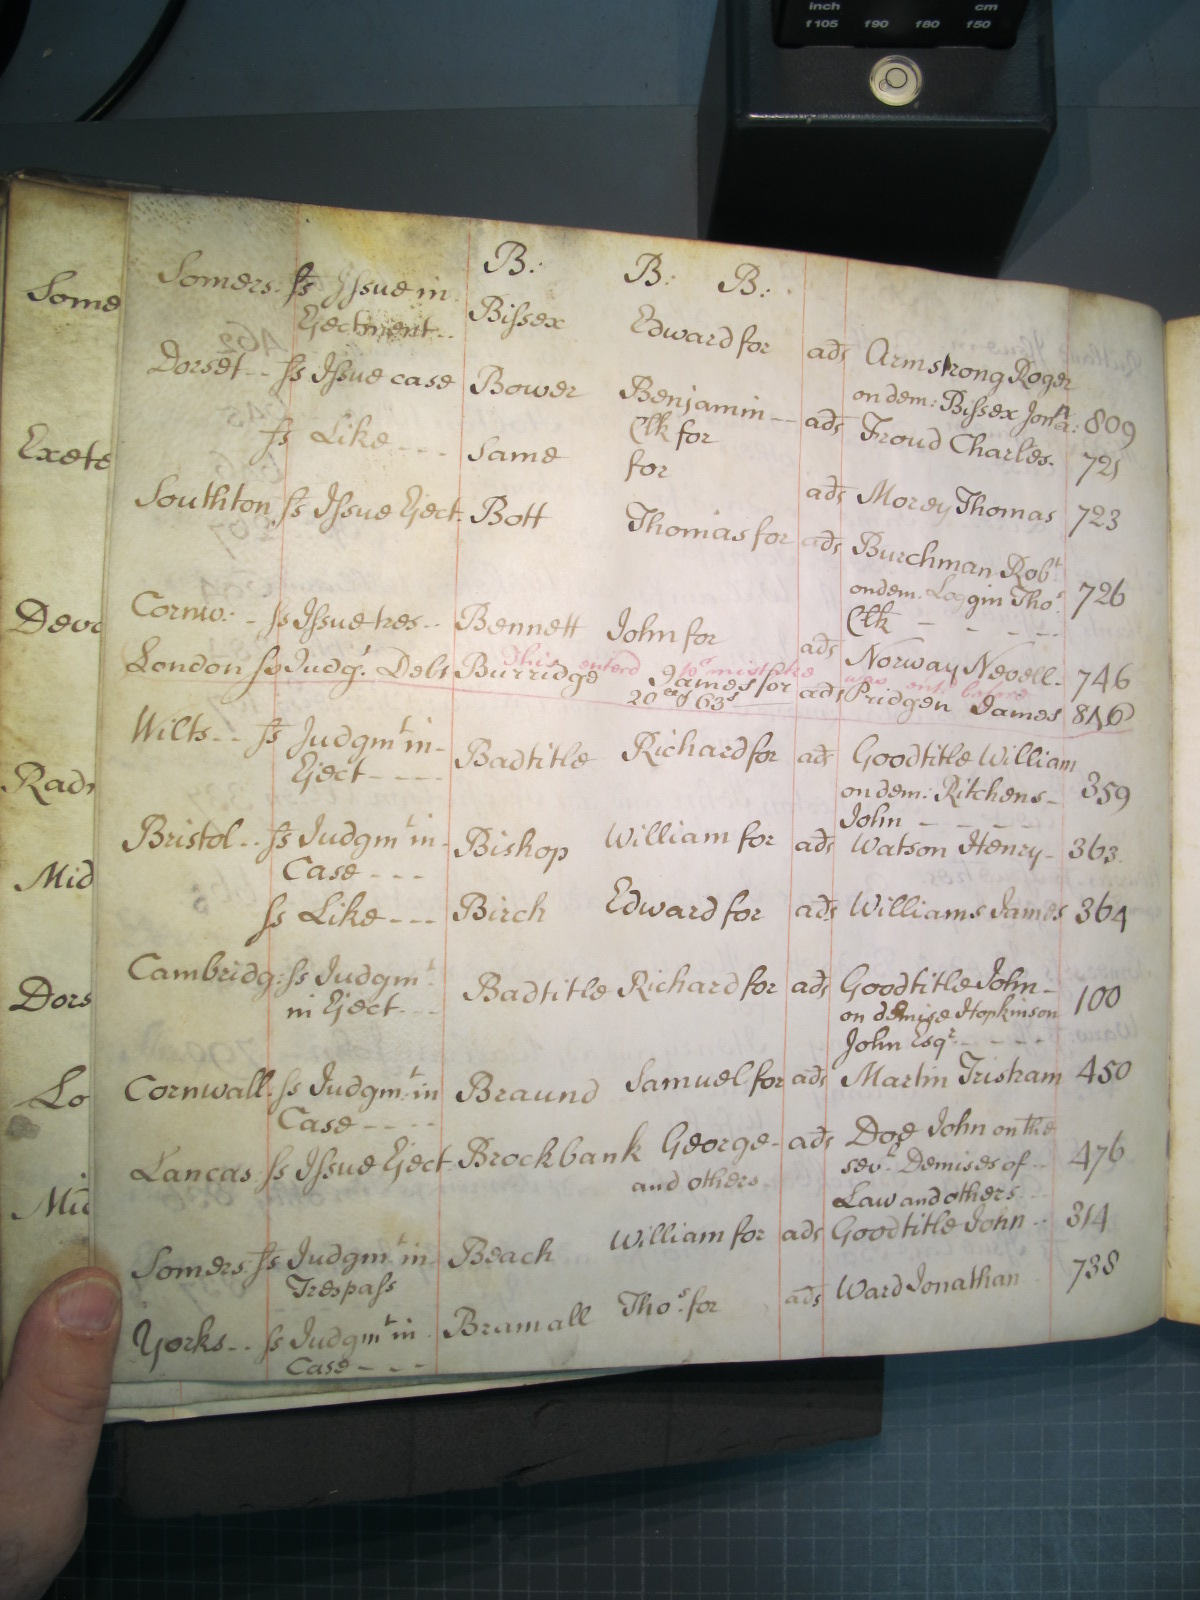 inch cm
f105 f90 f80 f50
B: B: B:
Somers. ſs Iſsue in Biſsex Edward for ads Armstrong Roger
Ejectment.. on dem: Biſsex Jonᵃ: 809
Dorset-- ſs Iſsue case Bower Benjamin— ads Froud Charles. 721
Clk for
ſs Like --- Same for ads Morey Thomas 723
Southton ſs Iſsue Eject. Bott Thomas for ads Burchman Robᵗ
on dem. Loggin Thoˢ. 726
Clk - - - --
Cornw: - ſs Iſsue tres-- Bennett John for ads Norway Nevell- 746
This enterd
London ſs Judgᵗ. Debt Burridge James for ads Pridgen James 846
Wilts-- ſs Judgmᵗ in- Badtitle Richard for ads Goodtitle William
Eject---- on dem: Kitchens- 359
John - - - -
Bristol.. ſs Judgmᵗ in- Bishop William for ads Watson Henry- 363.
Case ---
ſs Like --- Birch Edward for ads Williams James 364
Cambridg: ſs Judgmᵗ Badtitle Richard for ads Goodtitle John-
in Eject--- on demise Hopkinson 100
John Esqʳ - - - -
Cornwall. ſs Judgmᵗ in Braund Samuel for ads Martin Tristram 450
Case ----
Lancas. ſs Iſsue Eject. Brockbank George- ads Doe John on the
and others sevˡ. Demises of -- 476
Law and others.
Somers: ſs Judgmᵗ in- Beach William for ads Goodtitle John -- 314
Trespaſs
Yorks-- ſs Judgmᵗ in Bramall Thoˢ. for ads Ward Jonathan 738
Case - - -
Some
Exete
Devo
Radn
Mid
Dors
Lo
Mid